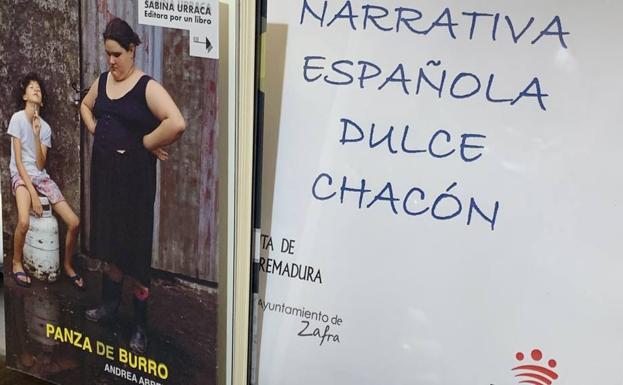 SABINA URRACA
Editora por un libro
PANZA DE BURRO
ANDREA
NARRATIVA
ESPAÑOLA
DULCE
CHACÓN
TA DE
REMADURA
Ayuntamiento de
Zafra